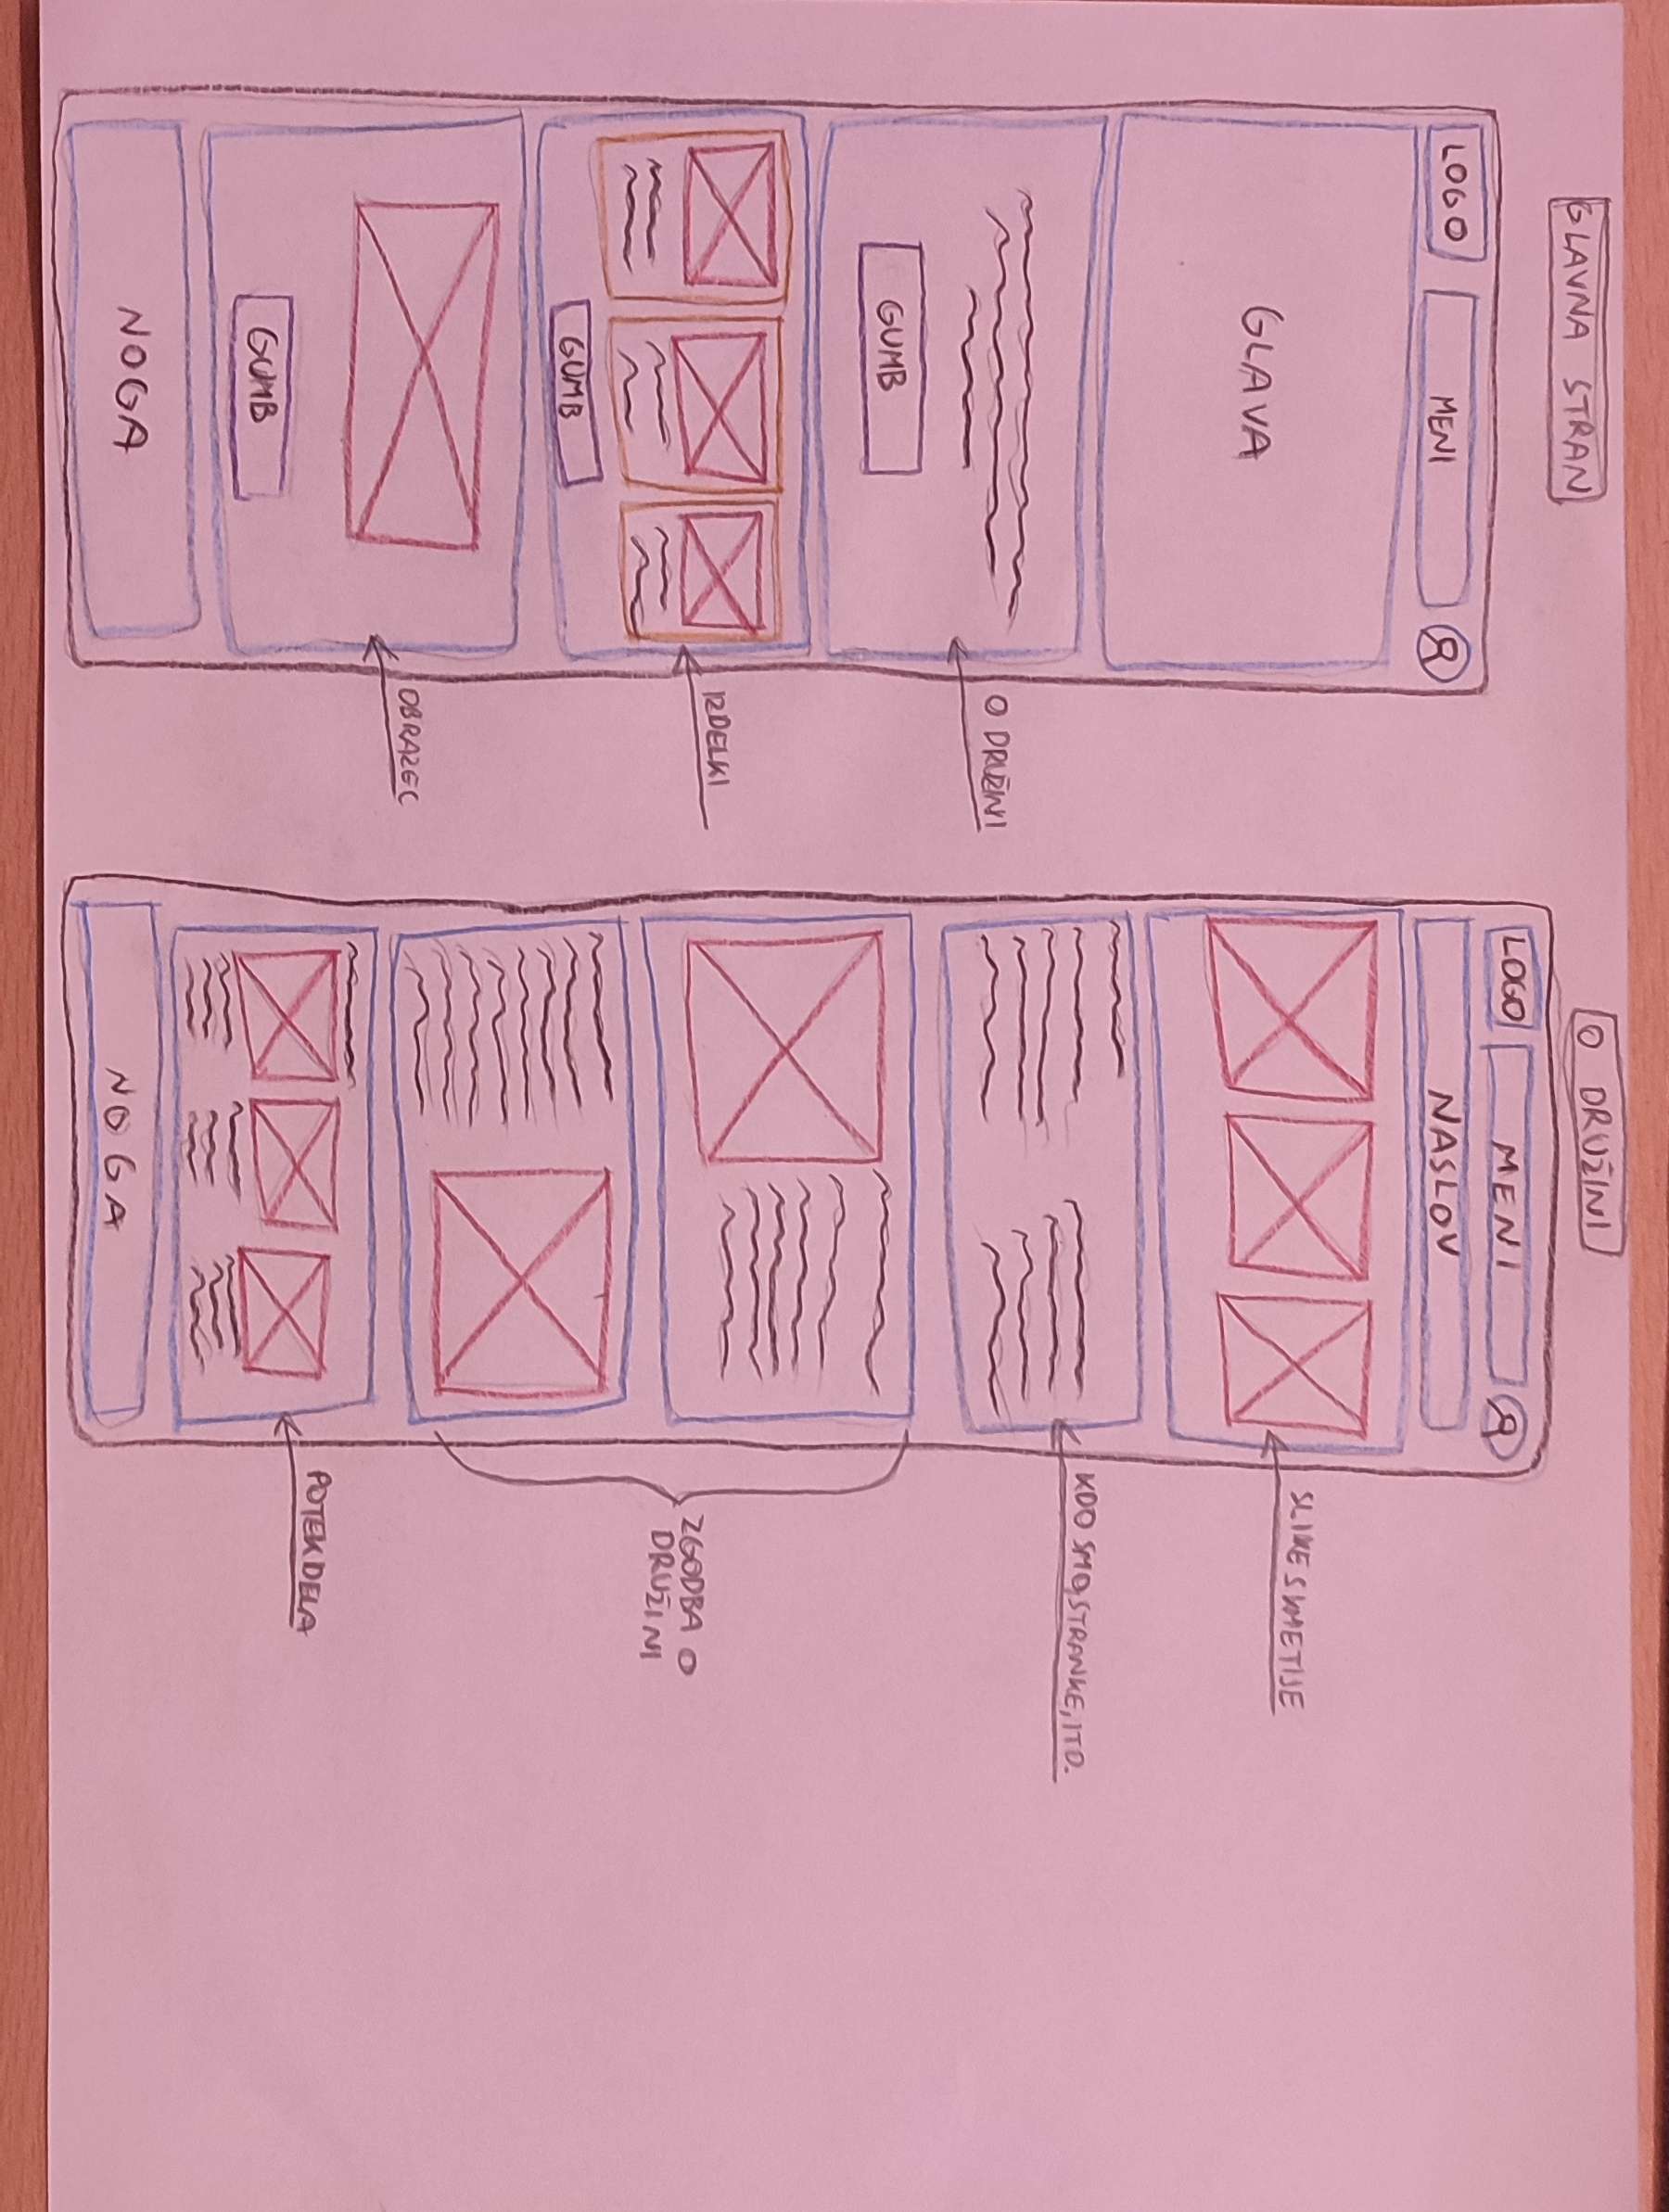 GLAVNA STRAN
LOGO
MENI
GLAVA
GUMB
O DRUŽINI
GUMB
IZDELKI
GUMB
OBRAZEC
NOGA
O DRUŽINI
LOGO
MENI
NASLOV
SLIKE S KMETIJE
KDO SMO, STRANKE, ITD.
ZGODBA O
DRUŽINI
POTEK DELA
NOGA